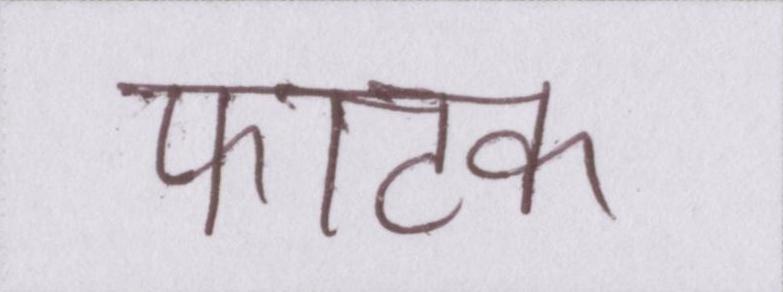 फाटक